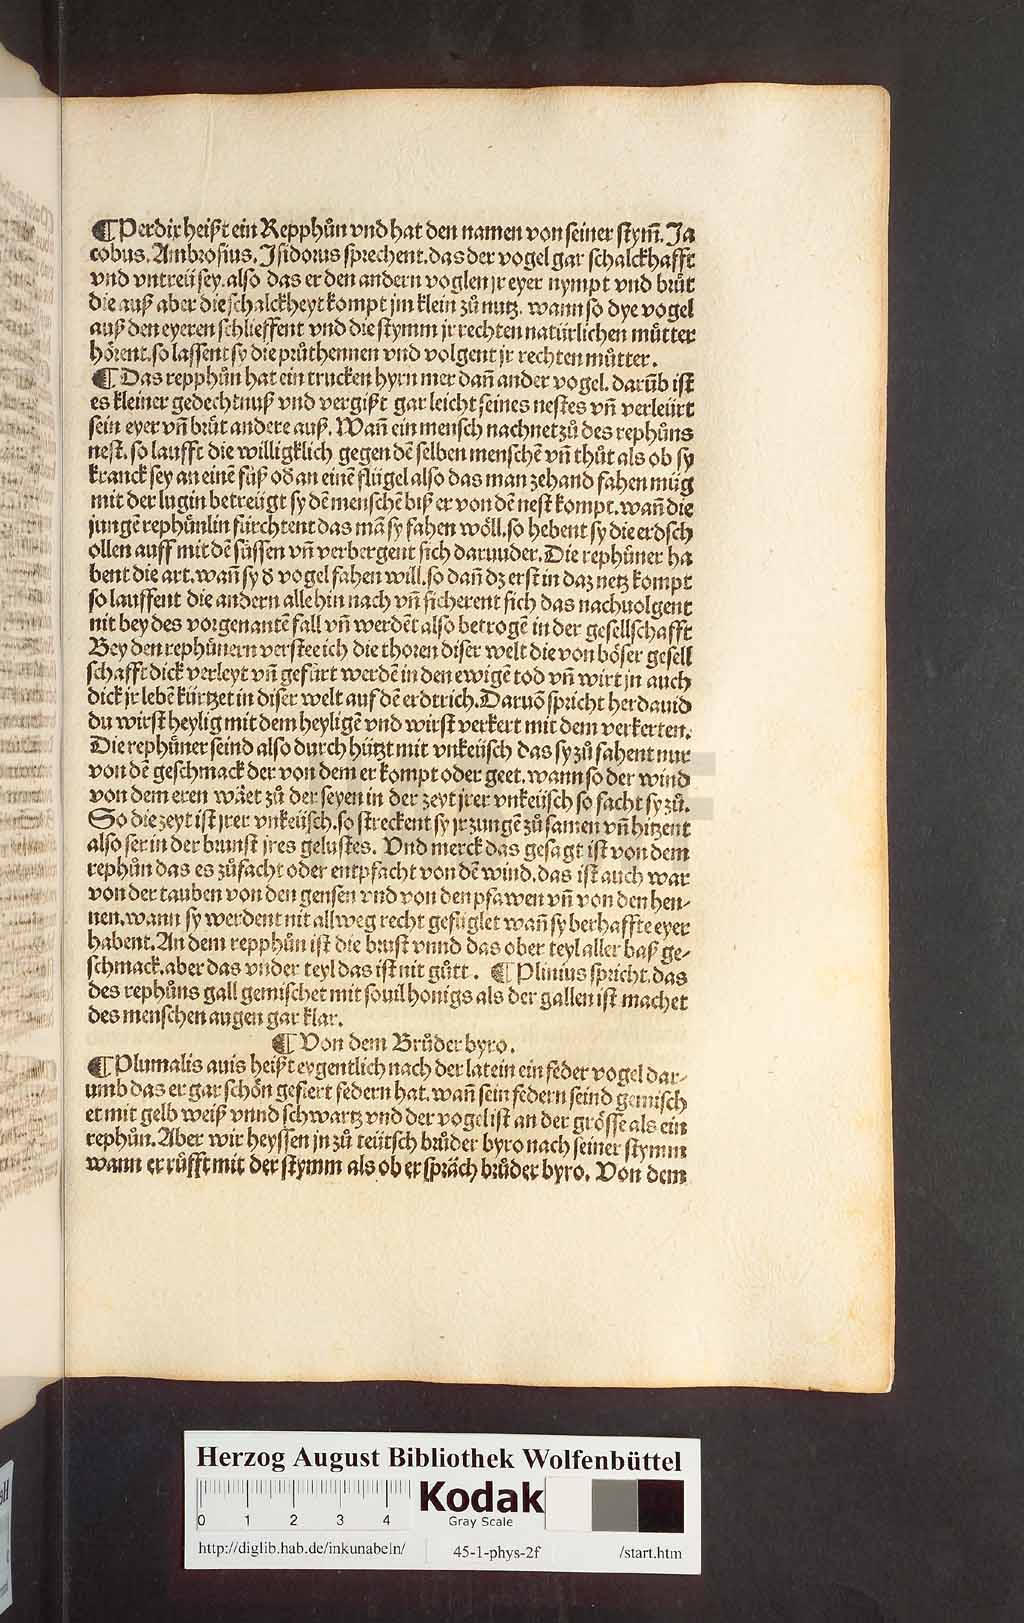 ¶ Perdix heißt ein Repphůn vnd hat den namen von seiner stym̄. Ja
cobus. Ambrosius. Isidorus sprechent. das der vogel gar schalckhafft
vnd vntreü sey. also das er den andern voglen jr eyer nympt vnd brůt
die auß aber die schalckheyt kompt jm klein zů nutz. wann so dye vogel
auß den eyeren schlieffent vnd die stymm jr rechten natürlichen můtter
hörent. so lassent sy die průthennen vnd volgent jr rechten můtter.
¶ Das repphůn hat ein trucken hyrn mer dañ ander vogel. darūb ist
es kleiner gedechtnuß vnd vergißt gar leicht seines nestes vñ verleürt
sein eyer vñ brůt andere auß. Wañ ein mensch nachnet zů des rephůns
nest. so laufft die willigklich gegen dē selben menschē vñ thůt als ob sy
kranck sey an einē fůß oď an einē flügel also das man zehand fahen müg
mit der lugin betreügt sy dē menschē biß er von dē nest kompt. wañ die
jungē rephůnlin fürchtent das mā sy fahen wöll. so hebent sy die erdsch
ollen auff mit dē füssen vñ verbergent sich daruuder. Die rephůner ha
bent die art. wañ sy ď vogel fahen will. so dañ dz erst in daz netz kompt
so lauffent die andern alle hin nach vñ sicherent sich das nachuolgent
nit bey des vorgenantē fall vñ werdēt also betrogē in der gesellschafft
Bey den rephůnern verstee ich die thoren diser welt die von böser gesell
schafft dick verleyt vñ gefürt werdē in den ewigē tod vñ wirt jn auch
dick jr lebē kürtzet in diser welt auf dē erdtrich. Daruō spricht her dauid
du wirst heylig mit dem heyligē vnd wirst verkert mit dem verkerten.
Die rephůner seind also durch hützt mit vnkeüsch das sy zů fahent nur
von dē geschmack der von dem er kompt oder geet. wann so der wind
von dem eren wäet zů der seyen in der zeyt jrer vnkeüsch so facht sy zů.
So die zeyt ist jrer vnkeüsch. so streckent sy jr zungē zů samen vñ hitzent
also ser in der brunst jres gelustes. Vnd merck das gesagt ist von dem
rephůn das es zůfacht oder entpfacht von dē wind. das ist auch war
von der tauben von den gensen vnd von den pfawen vñ von den hen-
nen. wann sy werdent nit allweg recht gefüglet wañ sy berhaffte eyer
habent. An dem repphůn ist die brust vnnd das ober teyl aller baß ge-
schmack. aber das vnder teyl das ist nit gůtt. ¶ Plinius spricht. das
des rephůns gall gemischet mit souil honigs als der gallen ist machet
des menschen augen gar klar.
¶ Von dem Brůder byro.
¶ Plumalis auis heißt eygentlich nach der latein ein feder vogel dar-
umb das er gar schön geziert federn hat. wañ sein federn seind gemisch
et mit gelb weiß vnnd schwartz vnd der vogel ist an der grösse als ein
rephůn. Aber wir heyssen jn zů teütsch brůder byro nach seiner stymm
wann er růfft mit der stymm als ob er spräch brůder byro. Von dem
Herzog August Bibliothek Wolfenbüttel
0 1 2 3 4
Kodak
Gray Scale
http://diglib.hab.de/inkunabeln/ 45-1-phys-2f /start.htm